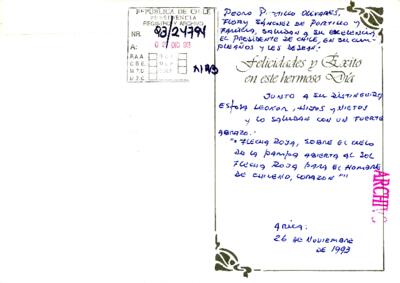 REPUBLICA DE CHILE
PRESIDENCIA
REGISTRO Y ARCHIVO
NR. 93/24794
A 02 DIC 93
P.A.A.
C.B.E.
M.T.O.
M.Z.C.
ARCHIVO
PEDRO P. OLIVARES,
FLORY SÁNCHEZ DE PORTILLO Y
FAMILIA, SALUDAN A SU EXCELENCIA
EL PRESIDENTE DE CHILE, EN SU CUM-
PLEAÑOS Y LES DESEAN:
Felicidades y Éxito
en este hermoso Día
JUNTO A SU DISTINGUIDA
ESPOSA LEONOR, HIJOS Y NIETOS
Y LO SALUDAN CON UN FUERTE
ABRAZO.
"FLECHA ROJA, SOBRE EL CIELO
DE LA PAMPA ABIERTA AL SOL
FLECHA ROJA PARA EL HOMBRE
DE CHILENO, CORAZON"
ARICA:
26 DE NOVIEMBRE
1993